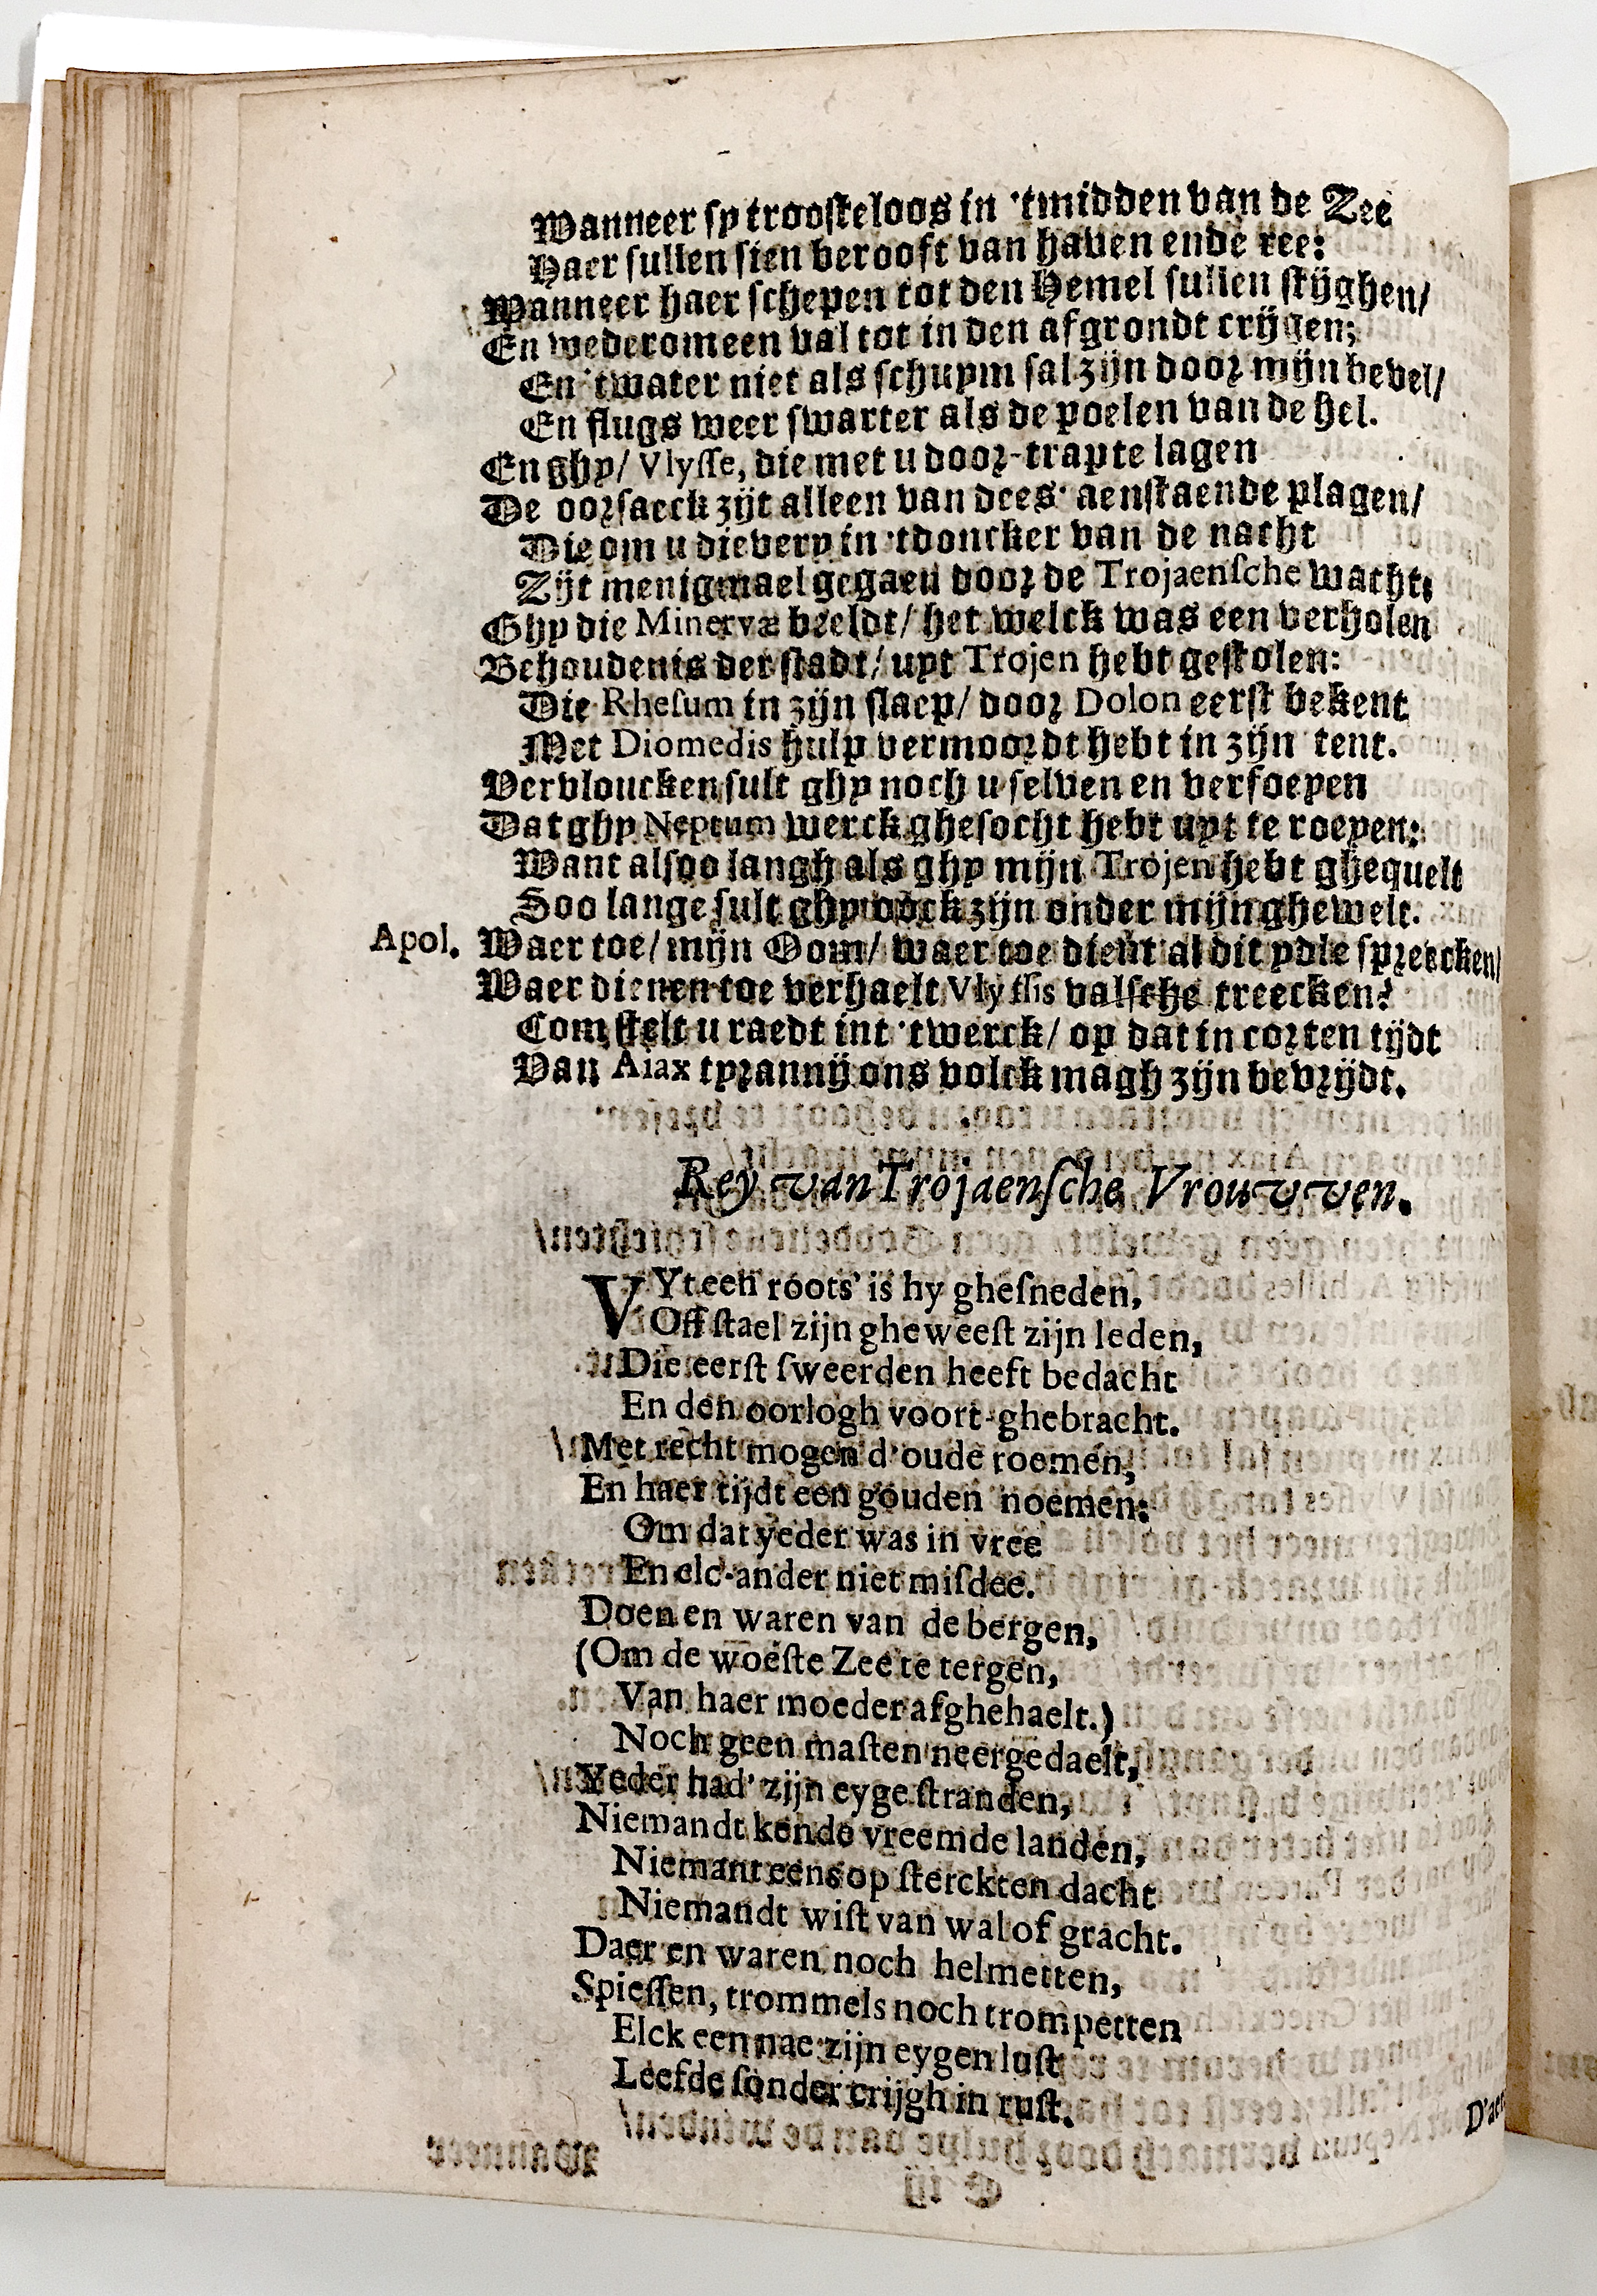 Wanneer sy troosteloos in 'tmidden van de Zee
Haer sullen sien berooft van haven ende ree:
Wanneer haer schepen tot den Hemel sullen stijghen/
En wederom een val tot in den afgrondt crijgen;
En 'twater niet als schuym sal zijn door mijn bevel/
En flugs weer swarter als de poelen van de hel.
En ghy/ Vlysse, die met u door-trapte lagen
De oorsaeck zijt alleen van dees' aenstaende plagen/
Die om u dievery in 'tdoncker van de nacht
Zijt menigmael gegaen door de Trojaensche wacht;
Ghy die Minervæ beeldt/ het welck was een verholen
Behoudenis der stadt/ uyt Trojen hebt gestolen:
Die Rhesum in zijn slaep/ door Dolon eerst bekent
Met Diomedis hulp vermoordt hebt in zijn tent.
Vervloucken sult ghy noch u selven en verfoeyen
Dat ghy Neptuni werck ghesocht hebt uyt te roeyen:
Want alsoo langh als ghy mijn Trojen hebt ghequelt
Soo lange sult ghy oock zijn onder mijn ghewelt.
Apol. Waer toe/ mijn Oom/ waer toe dient al dit ydle spreecken/
Waer dienen toe verhaelt Vlyssis valsche treecken?
Com stelt u raedt int 'twerck/ op dat in corten tijdt
Van Aiax tyrannij ons volck magh zijn bevrijdt.
Rey van Trojaensche Vrouvven.
VYt een roots' is hy ghesneden,
Off stael zijn gheweest zijn leden,
Die eerst sweerden heeft bedacht
En den oorlogh voort-ghebracht.
Met recht mogen d'oude roemen,
En haer tijdt een gouden noemen:
Om dat yeder was in vree
En elc-ander niet misdee.
Doen en waren van de bergen,
(Om de woeste Zee te tergen,
Van haer moeder afghehaelt.)
Noch geen masten neergedaelt,
Yeder had' zijn eyge stranden,
Niemandt kende vreemde landen,
Niemant eens op sterckten dacht
Niemandt wist van wal of gracht.
Daer en waren noch helmetten,
Spiessen, trommels noch trompetten
Elck een nae zijn eygen lust
Leefde sonder crijgh in rust.
D'aer